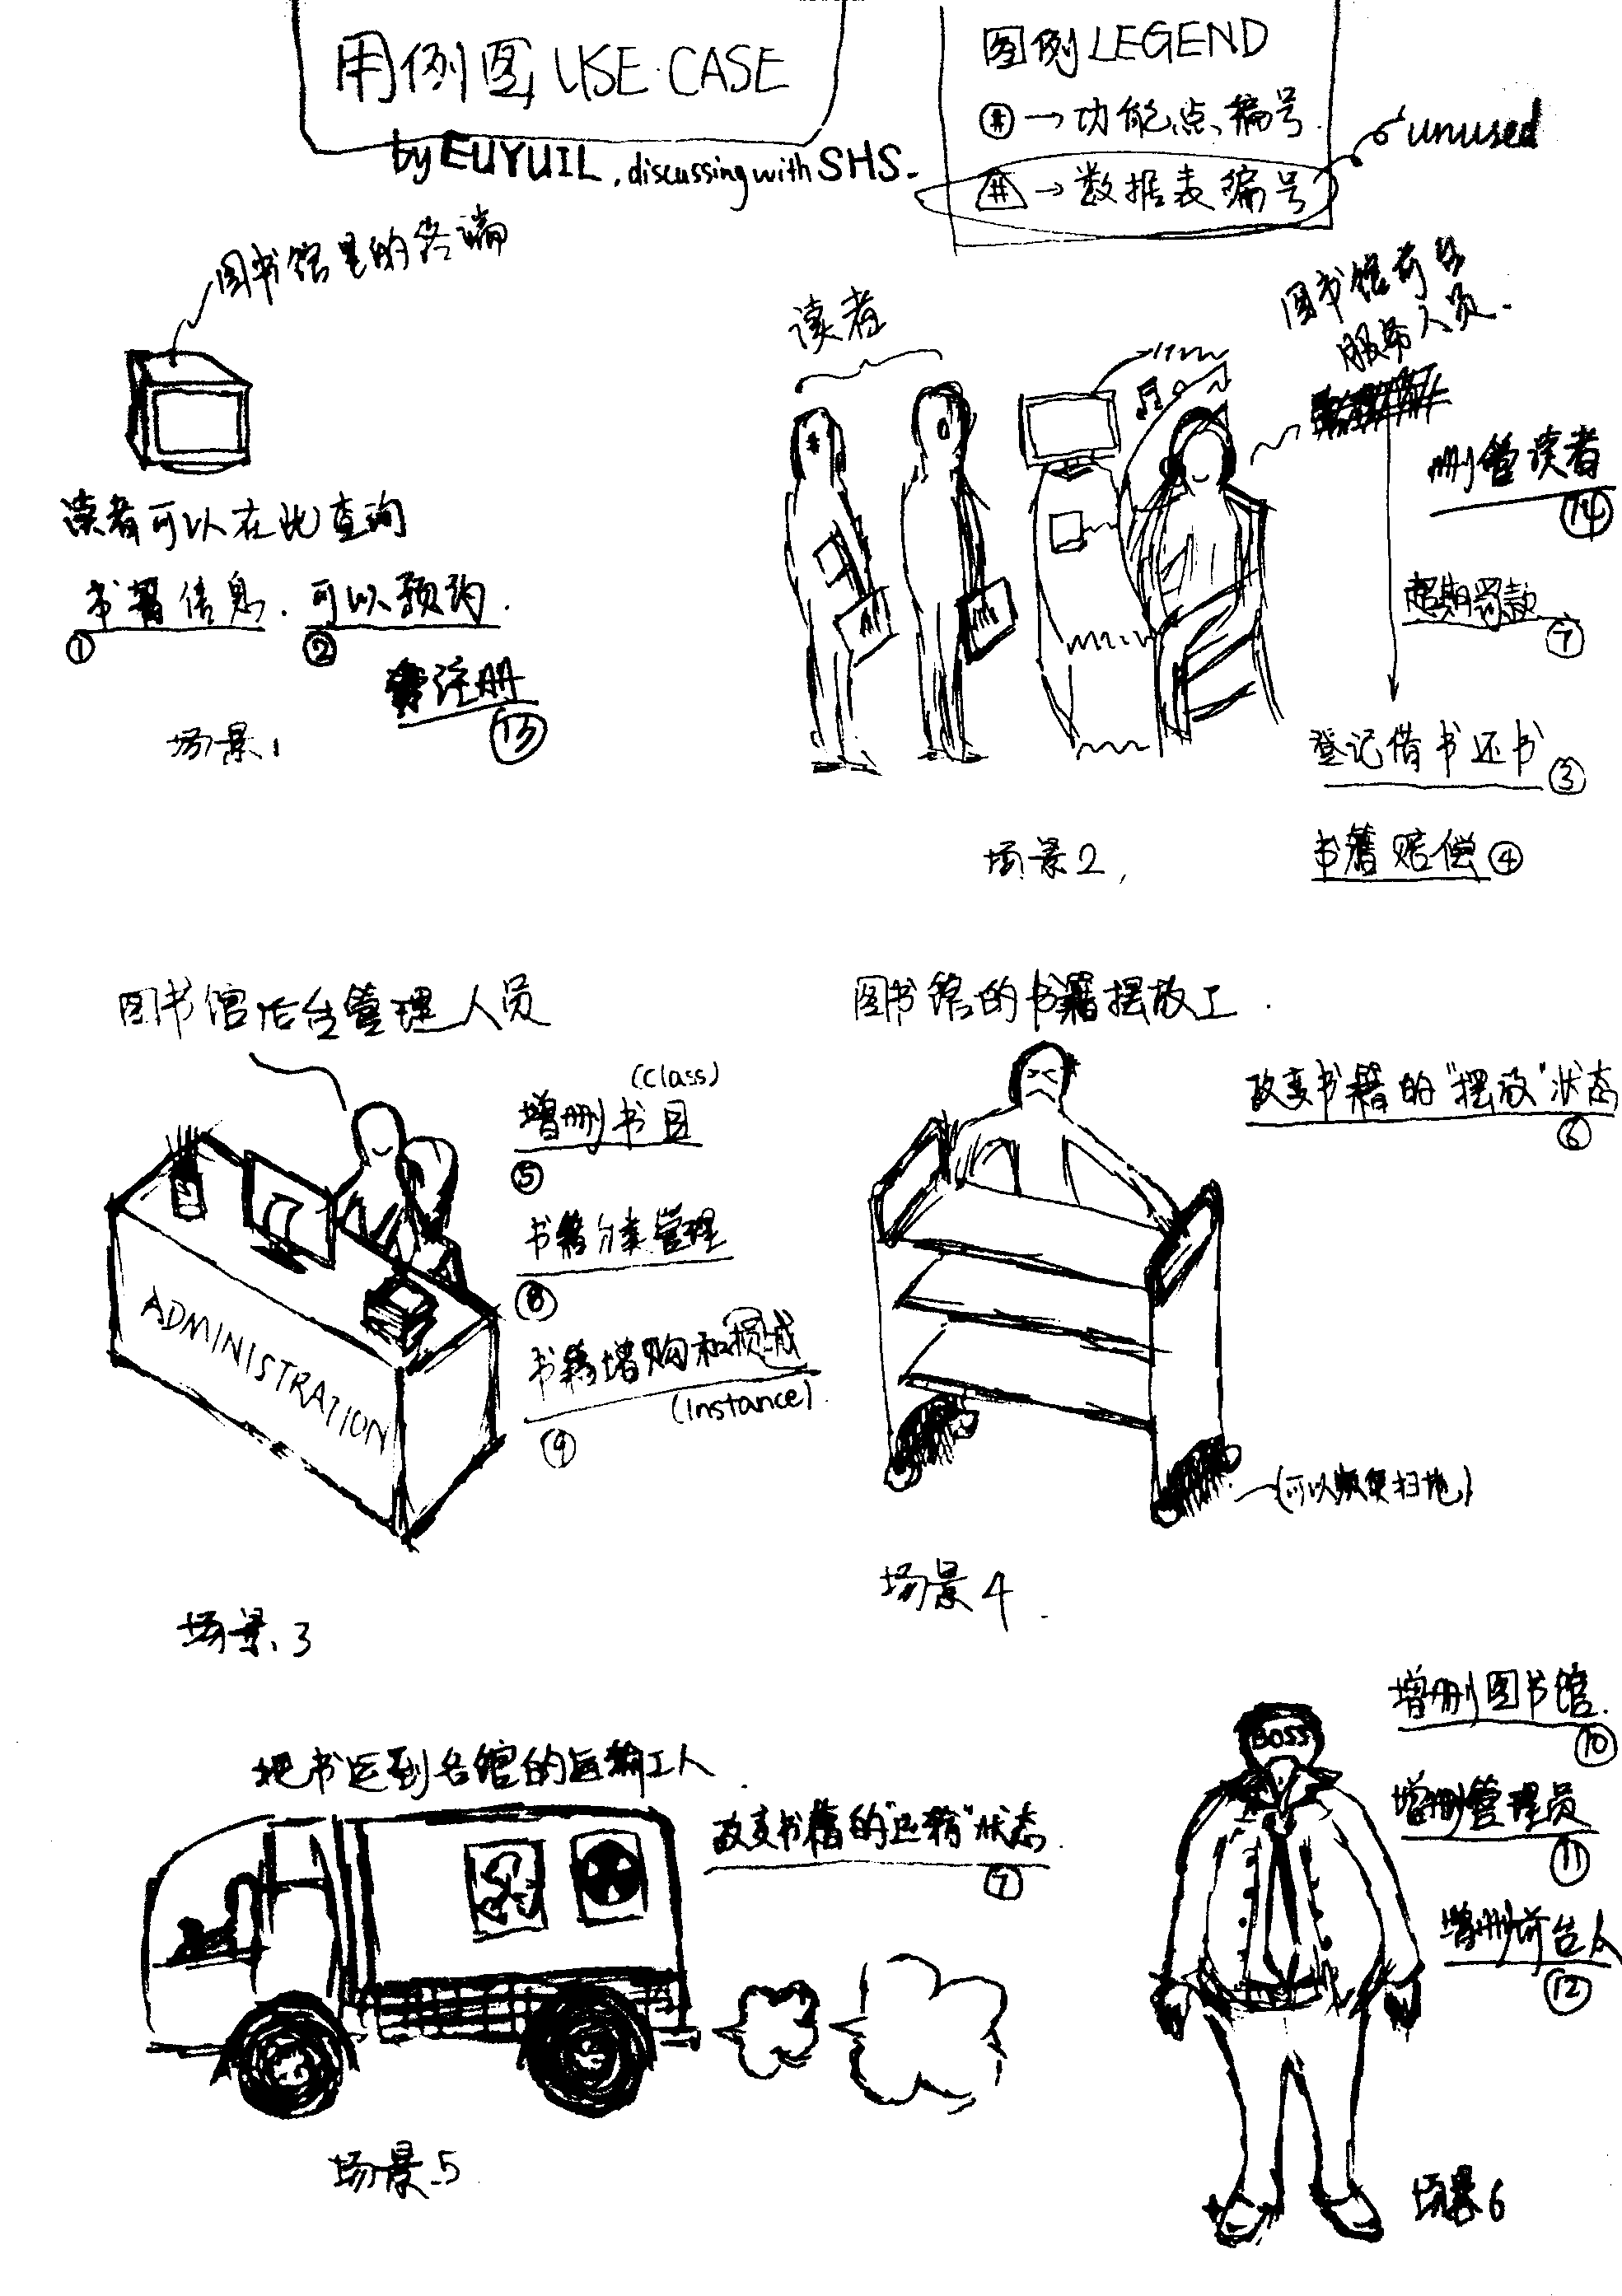 用例图 USE CASE
by EUYUIL, discussing with SHS.
图例 LEGEND
# → 功能点编号
# → 数据表编号
unused
图书馆里的终端
读者可以在此查询
书籍信息. 可以预约.
① ②
注册
⑬
场景1
读者
图书馆前台
服务人员.
删管读者
⑭
超期罚款
⑦
登记借书还书 ③
书籍赔偿 ④
场景2
图书馆后台管理人员
(class)
增删书目
⑤
书籍分类管理
⑧
书籍增购和损减
(Instance)
⑨
ADMINISTRATION
场景3
图书馆的书籍摆放工.
改变书籍的"摆放"状态
⑥
(可以顺便扫地)
场景4
把书运到各馆的运输工人.
改变书籍的"运输"状态.
⑦
场景5
BOSS
增删图书馆.
⑩
增删管理员
⑪
增删前台人
⑫
场景6